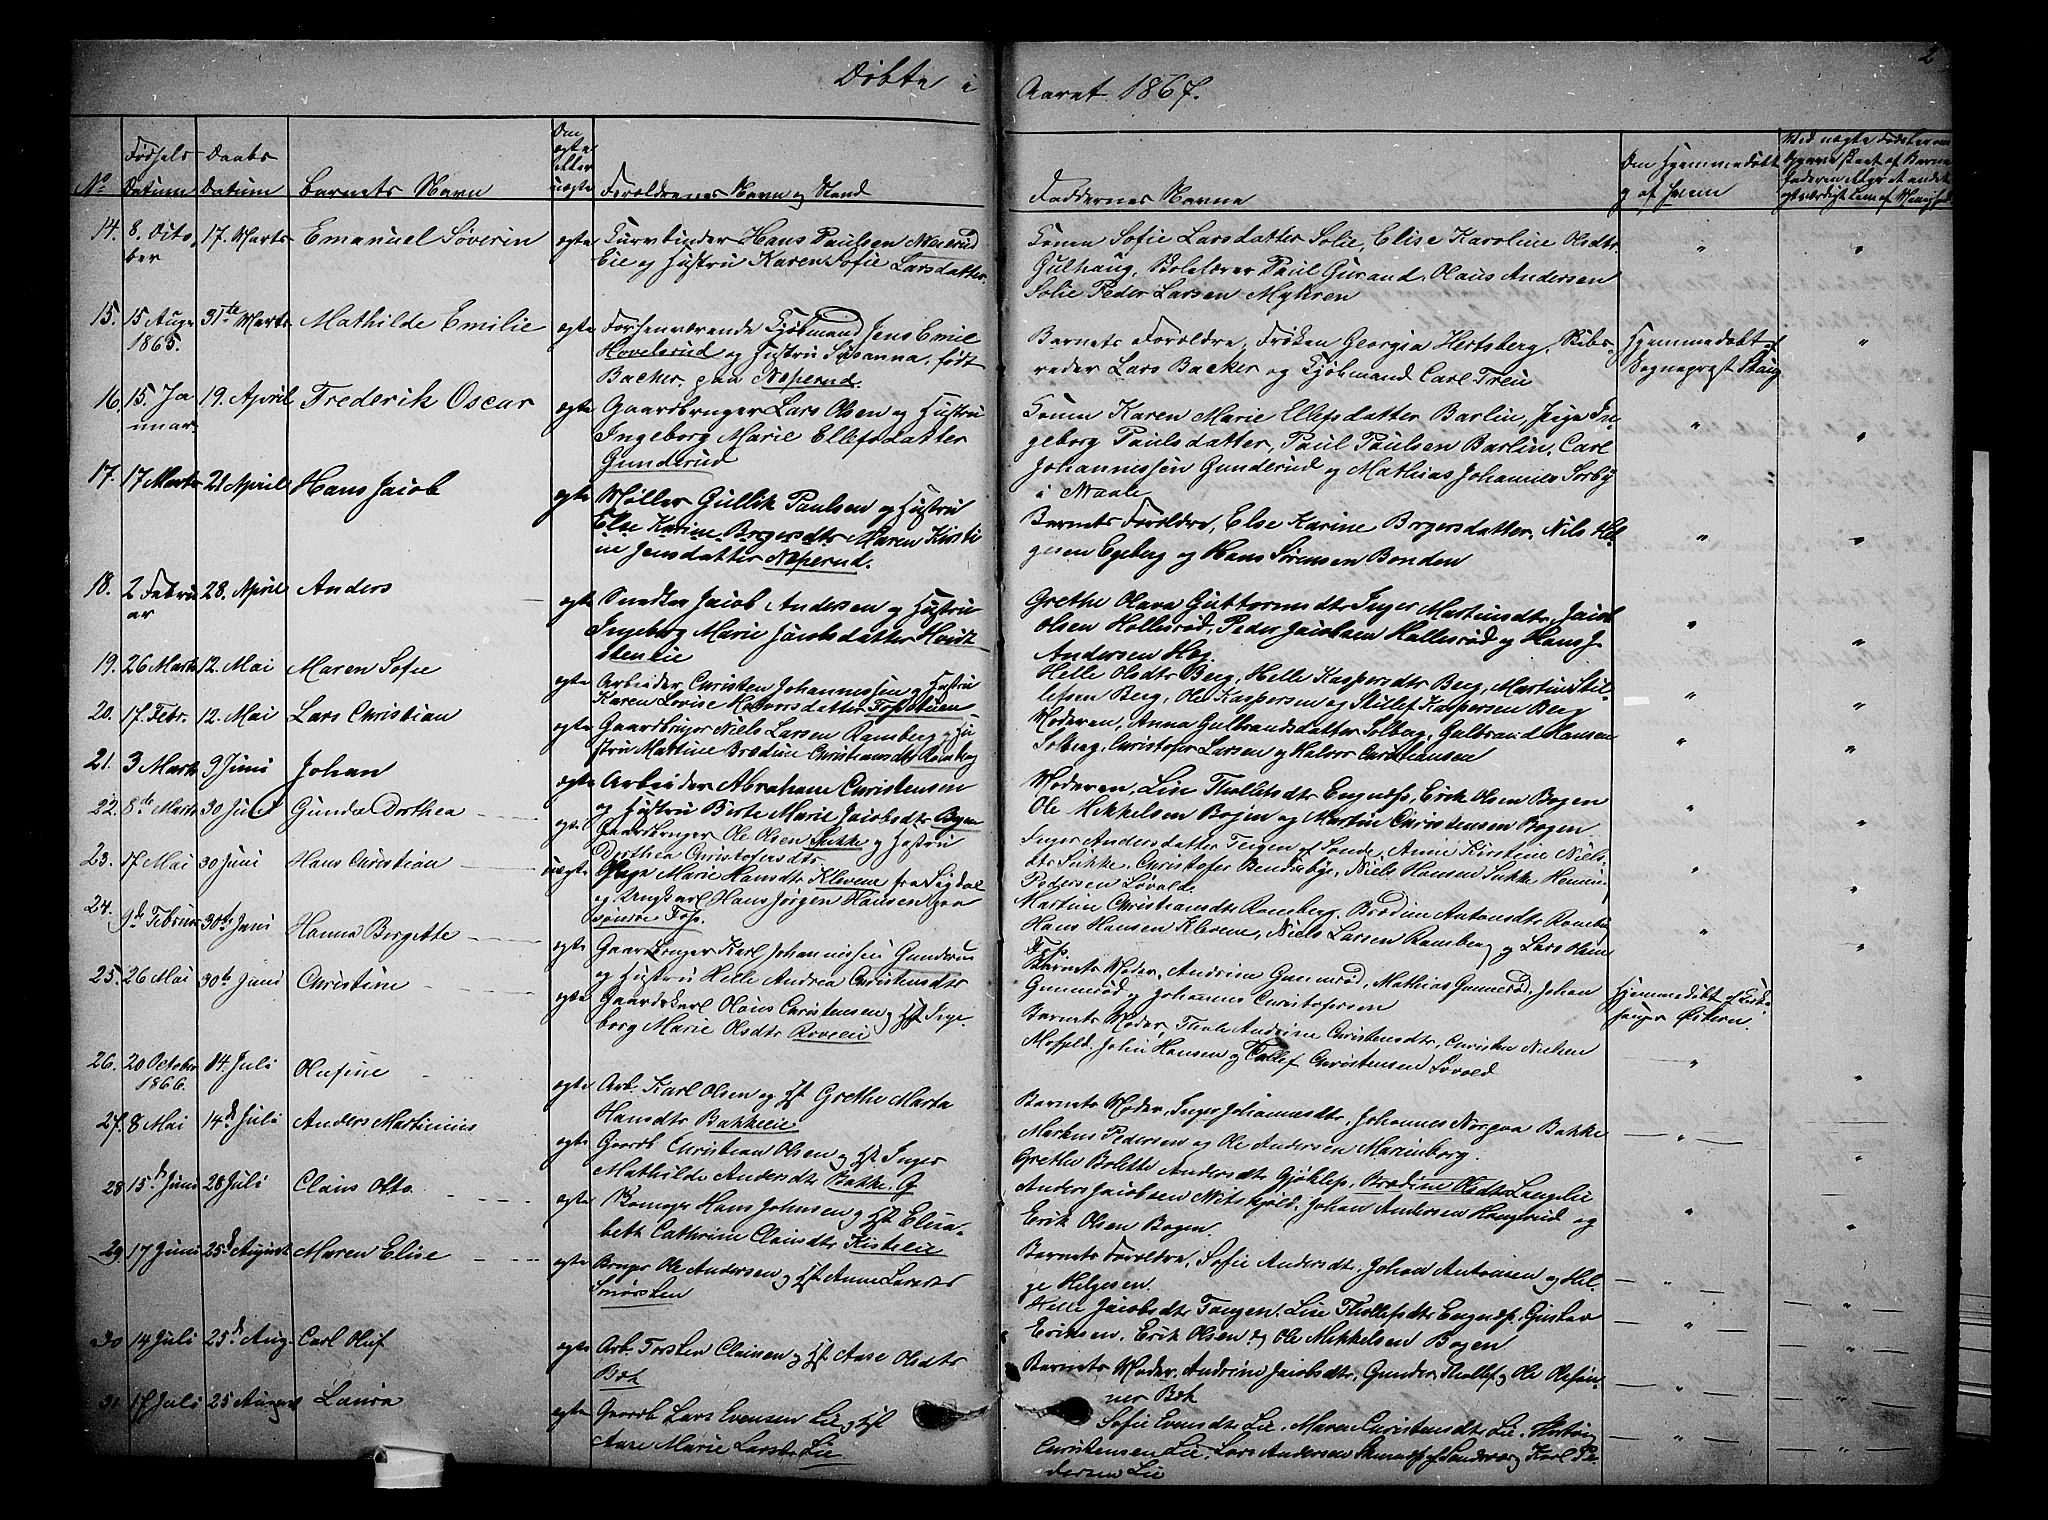 Døbte i Aaret 1867.
2
No
Fødsels Datum
Daabs Datum
Barnets Navn
Om ægte eller uægte
Forældrenes Navn og Stand
Faddernes Navne
Om Hjemmedøbt og af hvem
14. 8. Octo- 17. Marts Emanuel Severin ægte Kurvbinder Hans Paulsen
ber Eie og Hustru Karen Sofie Larsdatter.
Konen Sofie Larsdatter Solie, Elise Karoline Olsdtr
Gulhaug, Skolelærer Paul Gurand, Olaus Andersen
Solie Peder Larsen Myhren
15. 15 Aug. 31te Marts Mathilde Emilie ægte Forhenværende Kjøbmand Jens Emil
1865. Hovelsrud og Hustru Susanna, født
Backer. paa Næperud.
Barnets Forældre, Frøken Georgia Hertsberg, Skibs-
reder Lars Backer og Kjøbmand Carl Treu
Hjemmedøbt af
Sognepræst
16. 15. Ja 19. April Frederik Oscar ægte Gaardbruger Lars Olsen og Hustru
nuar Ingeborg Marie Ellefsdatter
Gunderud
Konen Karen Marie Ellefsdatter Barlin, Pige In-
geborg Paulsdatter, Paul Paulsen Barlin, Carl
Johannessen Gunderud og Mathias Johannes Sorby
i Waale
17. 17 Marts 21 April Hans Jacob ægte Møller Gullik Paulsen og Hustru
Else Karine Borgersdtr Maren Kirsti
ne Jensdatter Næperud.
Barnets Forældre, Else Karine Borgersdatter, Nils Hel-
gesen Egeberg og Hans Sørensen Bonden
18. 2 Febru 28. April Anders ægte Snedker Jacob Andersen og Hustru
ar Ingeborg Marie Jacobsdatter Hvidt-
stenlie
Grethe Olava Guttormsdtr Inger Martinsdtr, Jacob
Olsen Hallesrød, Peder Jacobsen Hallesrød og Hans J.
Andersen Høg
19. 26 Marts 12. Mai Maren Sofie ægte Arbeider Christen Johannessen og Hustru
Karen Lovise Halvorsdatter Fosstuen
Helle Olsdtr Berg, Helle Kaspersdtr Berg, Martin Stil-
lefsen Berg, Ole Kaspersen og Stillef Kaspersen Berg
20. 17. Febr. 12. Mai Lars Christian ægte Gaardbruger Niels Larsen Ramberg og Hu
stru Martine Brædine Christiansdtr Ramberg
Moderen, Anna Gulbrandsdatter Solberg, Gulbrand Hansen
Solberg, Christofer Larsen og Halvor Christiansen
21. 3 Marts 9 Juni Johan ægte Arbeider Abraham Christensen
og Hustru Birte Marie Jacobsdtr Bogen
Moderen, Lise Thollefsdtr Engnæs, Erik Olsen Bogen
Ole Mikkelsen Bogen og Martin Christensen Bogen
22. 8de Marts 30 Juni Gunda Dorthea ægte Gaardbruger Ole Olsen Sukke og Hustru
Dorthea Christofersdtr
Inger Andersdatter Teigen af Sande, Anne Kirstine Niels-
dtr Sukke, Christofer Bendiksby, Niels Hansen Sukke Hemin
Pedersen Løvald
23. 17 Mai 30 Juni Hans Christian uægte Pige Marie Hansdtr Klevene fra Sigdal
og Ungkarl Hans Jørgen Hansen paa
Søndre Fos.
Martine Christiansdtr Ramberg, Brædine Antonsdtr Ramberg
Hans Hansen Klevene, Niels Larsen Ramberg og Lars Olsen
Fos.
24. 9de Februar 30te Juni Hanna Bergette ægte Gaardbruger Karl Johannessen Gunderud
og Hustru Helle Andrea Christensdtr
Barnets Moder, Andrine Gunnerød, Mathias Gunnerød, Johan
Gunnerød og Johannes Christofersen
25. 26 Mai 30te Juni Christine ægte Gaardskarl Olaus Christensen og Hst Inge-
borg Marie Olsdtr Roveli
Barnets Moder, Thale Andrine Christensdtr, Christen Nielsen
Moffeld, Johan Hansen og Tollef Christensen Løvald
Hjemmedøbt af Kirke-
sanger Østern.
26. 20 October 14. Juli Olufine ægte Arb. Karl Olsen og Hst Grethe Marta
1866. Hansdtr Bakkelie
Barnets Moder, Inger Johannesdtr, Johannes Norgaa Bakke
Markus Pedersen og Ole Andersen Marienborg.
27. 8 Mai 14de Juli Anders Martinius ægte Gaardb Christian Olsen og Hst Inger
Mathilde Andersdtr Bakke. G
Grethe Bolette Andersdtr Gjøklep, Brædine Olsdtr Langelie
Anders Jacobsen Nitskjold, Johan Andersen Haugerud og
Erik Olsen Bogen.
28 15de Juni 28 Juli Claus Otto ægte Skomager Hans Johnsen og Hst Elisa-
beth Cathrine Clausdtr Kistelie
Barnets Forældre, Sofie Andersdtr, Johan Antonsen og Hel-
ge Helgesen.
29 17 Juni 25de August Maren Elise ægte Bruger Ole Andersen og Hst Anne Larsdtr
Snørsten
Helle Jacobsdtr Tangen, Lise Thollefsdtr Engnæs, Gustav
Eriksen, Erik Olsen og Ole Mikkelsen Bogen
30 14 Juli 25de Aug. Carl Oluf ægte Arb Torsten Clausen og Hst Aase Olsdtr
Bøk
Barnets Moder, Andrine Jacobsdtr, Gunder Thollefs og Ole Olesøn-
ner Bøk
31 17 Juli 25 August Laura ægte Gaardb Lars Evensen Lie og Hst
Aase Marie Larsdtr Lie
Sofie Evensdtr Lie, Maren Christensdtr Lie,
Christensen Lie, Lars Andersen og Karl Pe-
dersen Lie